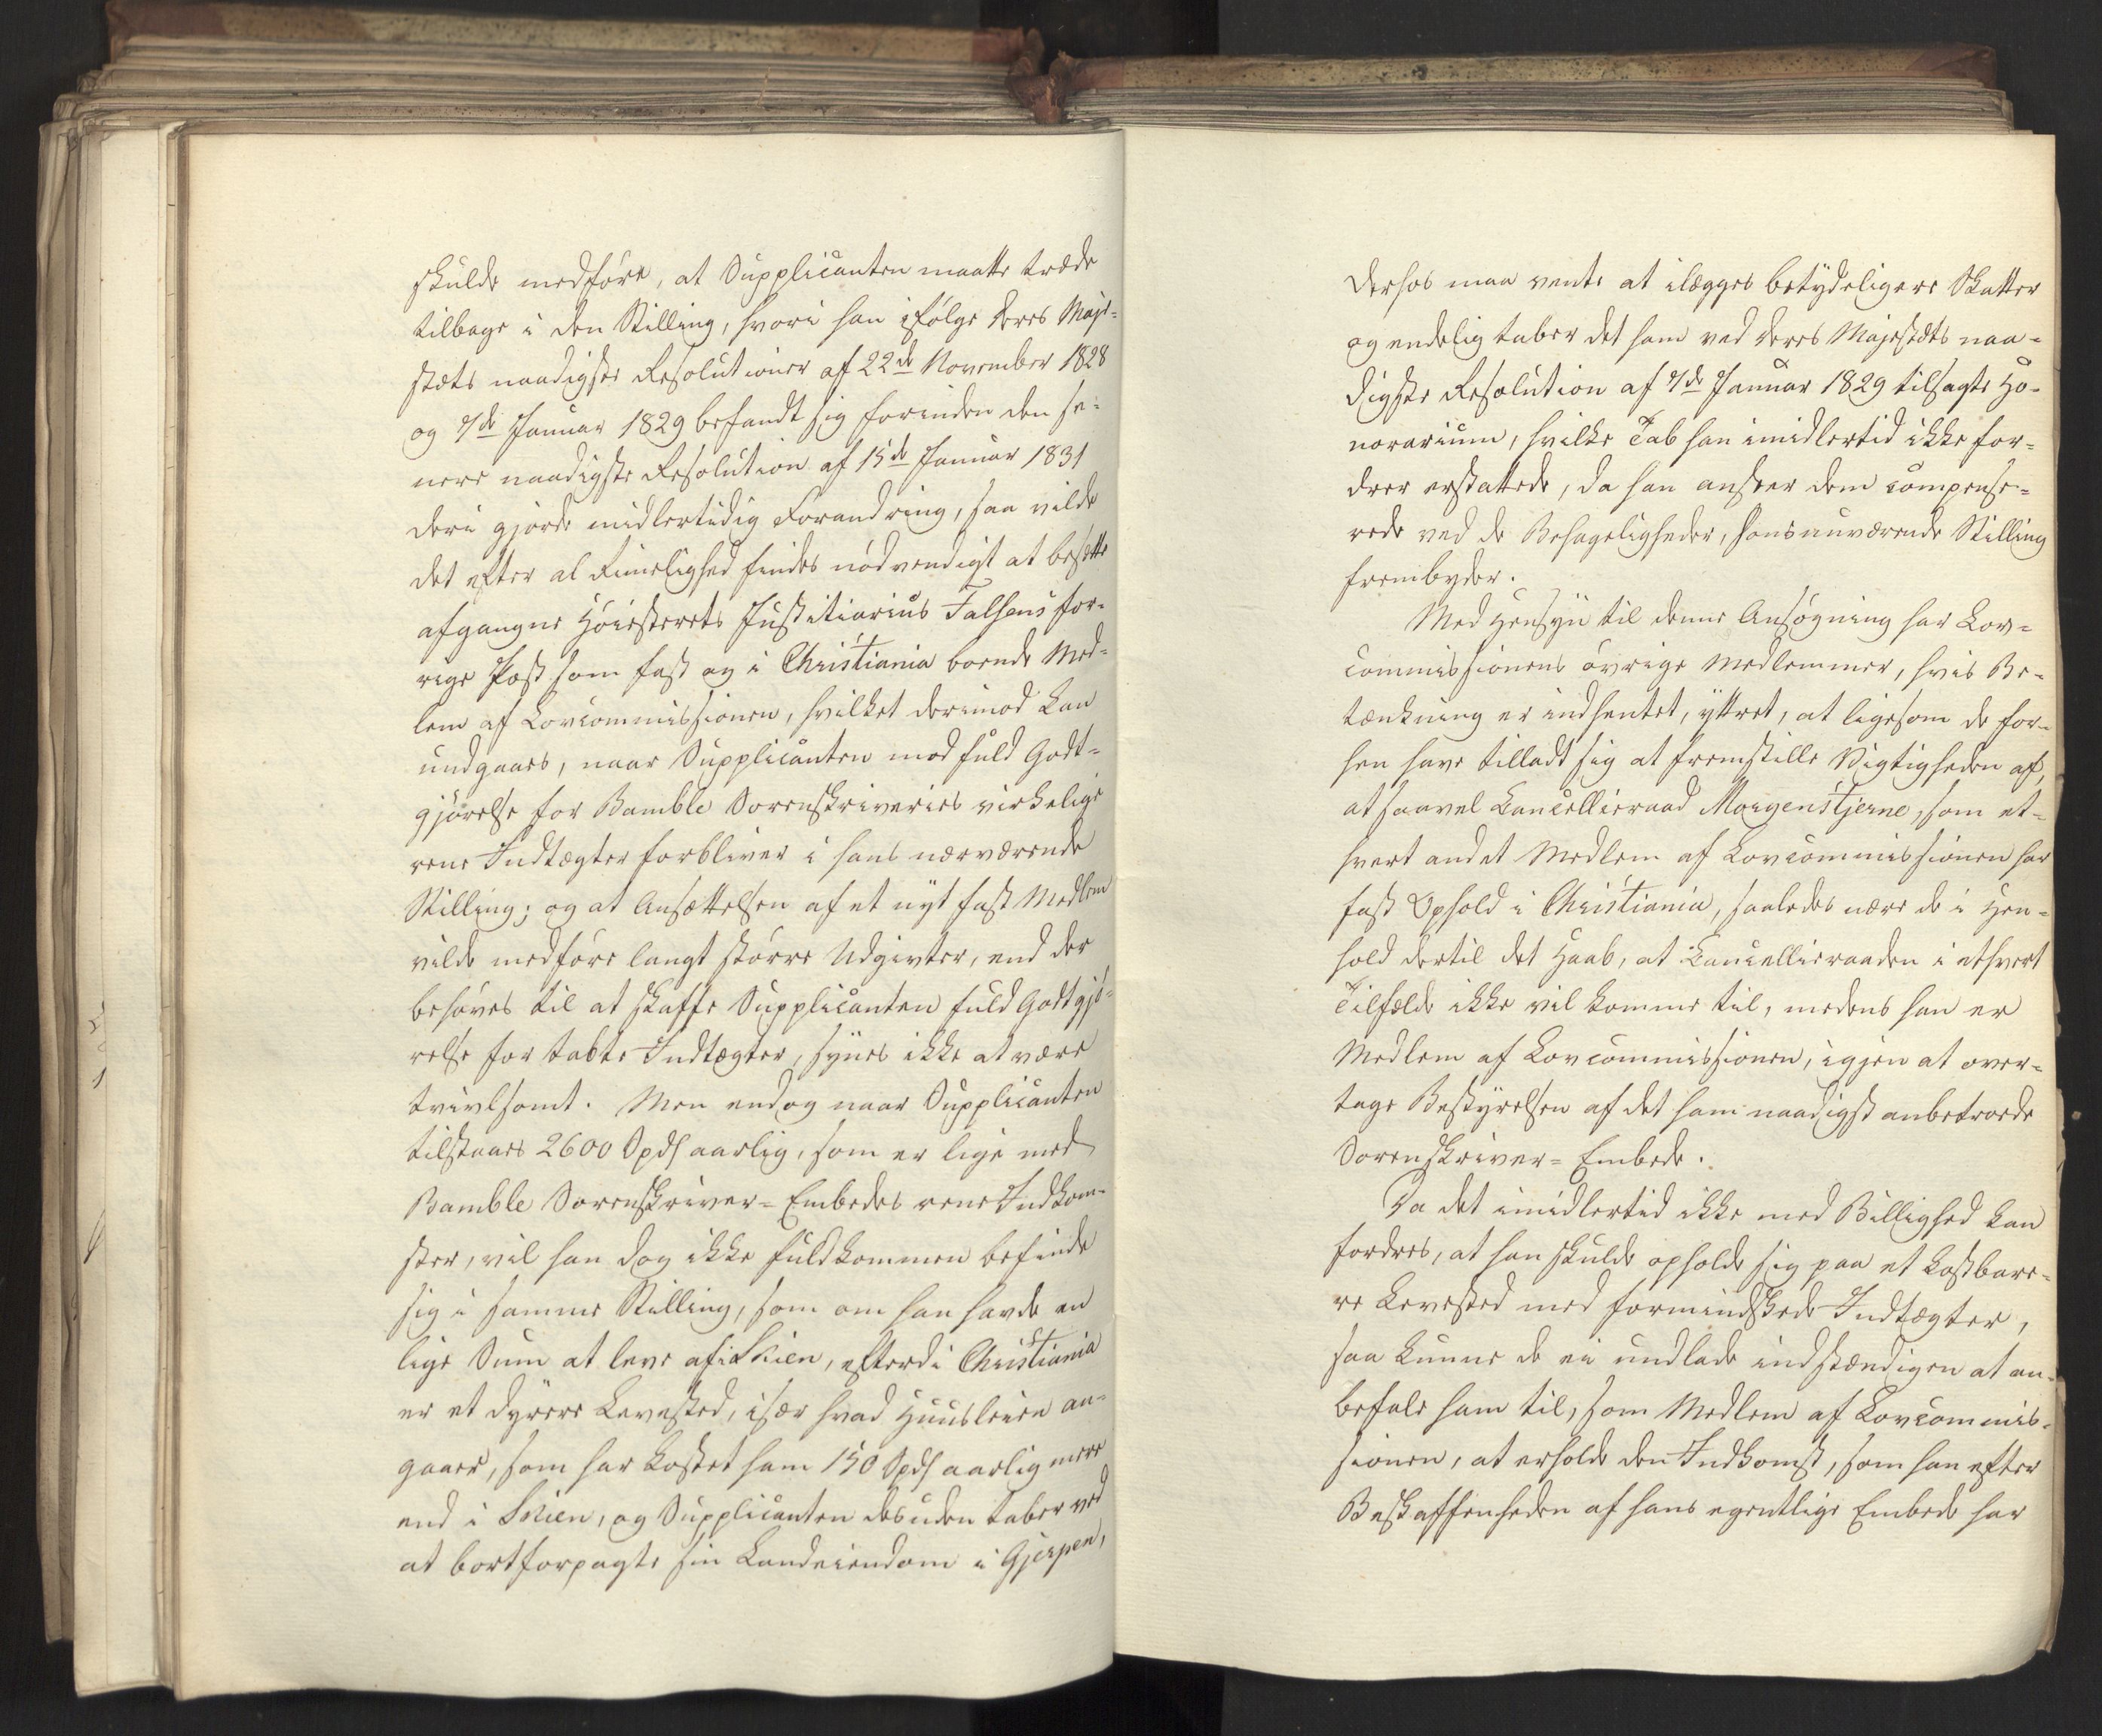 skulde medføre, at Supplicanten maatte træde
tilbage i den Stilling, hvori han ifølge Deres Maje-
stæts naadigste Resolutioner af 22de November 1828
og 7de Januar 1829 befandt sig forinden den se-
nere naadigste Resolution af 15de Januar 1831
deri gjorde midlertidig Forandring, saa vilde
det efter al Rimelighed findes nødvendigt at besætte
afgangne Høiesterets Justitiarius Falsens for-
rige Post som fast og i Christiania boende Med-
lem af Lovcommissionen, hvilket derimod kan
undgaaes, naar Supplicanten mod fuld Godt-
gjørelse for Bamble Sorenskriveries virkelige
rene Indtægter forbliver i hans nærværende
Stilling; og at Ansættelsen af et nyt fast Medlem
vilde medføre langt større Udgivter, end der
behøves til at skaffe Supplicanten fuld Godtgjø-
relse for tabte Indtægter, synes ikke at være
tvivlsomt. Men endog naar Supplicanten
tilstaaes 2600 Spd aarlig, som er lige med
Bamble Sorenskriver-Embedes rene Indkom-
ster, vil han dog ikke fuldkommen befinde
sig i samme Stilling, som om han havde en
lige Sum at leve af i Skien, efterdi Christiania
er et dyrere Levested, især hvad Huusleien an-
gaaer, som har kostet ham 150 Spd aarlig mere
end i Skien, og Supplicanten desuden taber ved
at bortforpagte sin Landeiendom i Gjerpen,
derhos maa vente at ilægges betydeligere Skatter
og endelig taber det ham ved Deres Majestæts naa-
digste Resolution af 7de Januar 1829 tilsagte Ho-
norarium, hvilke Tab han imidlertid ikke for-
drer erstattede, da han anseer dem compense-
rede ved de Behageligheder, hans nuværende Stilling
frembyder.
Med Hensyn til denne Ansøgning har Lov-
commissionens øvrige Medlemmer, hvis Be-
tænkning er indhentet, yttret, at ligesom de for-
hen have tilladt sig at fremstille Vigtigheden af,
at saavel Cancellieraad Morgenstjerne, som et-
hvert andet Medlem af Lovcommissionen har
fast Ophold i Christiania, saaledes nære de i Hen-
hold dertil det Haab, at Cancellieraaden i ethvert
Tilfælde ikke vil komme til, medens han er
Medlem af Lovcommissionen, igjen at over-
tage Bestyrelsen af det ham naadigst anbetroede
Sorenskriver-Embede.
Da det imidlertid ikke med Billighed kan
fordres, at han skulde opholde sig paa et kostbare-
re Levested med formindskede Indtægter,
saa kunne de ei undlade indstændigen at an-
befale ham til, som Medlem af Lovcommis-
sionen, at erholde den Indkomst, som han efter
Beskaffenheden af hans egentlige Embede har